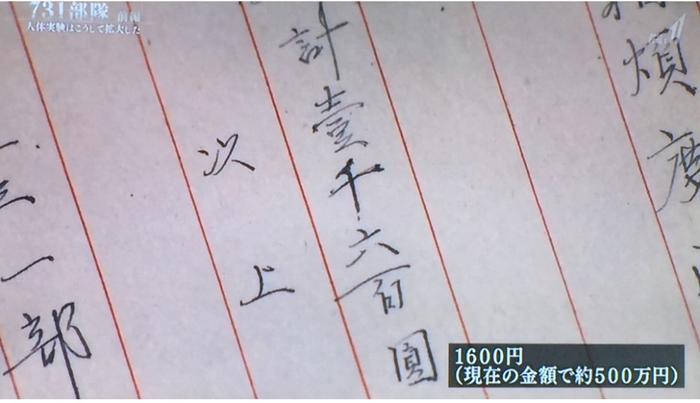 731部隊 前編
人体実験はこうして拡大した
煩度
計壹千六百圓
次上
三一部
1600円
(現在の金額で約500万円)